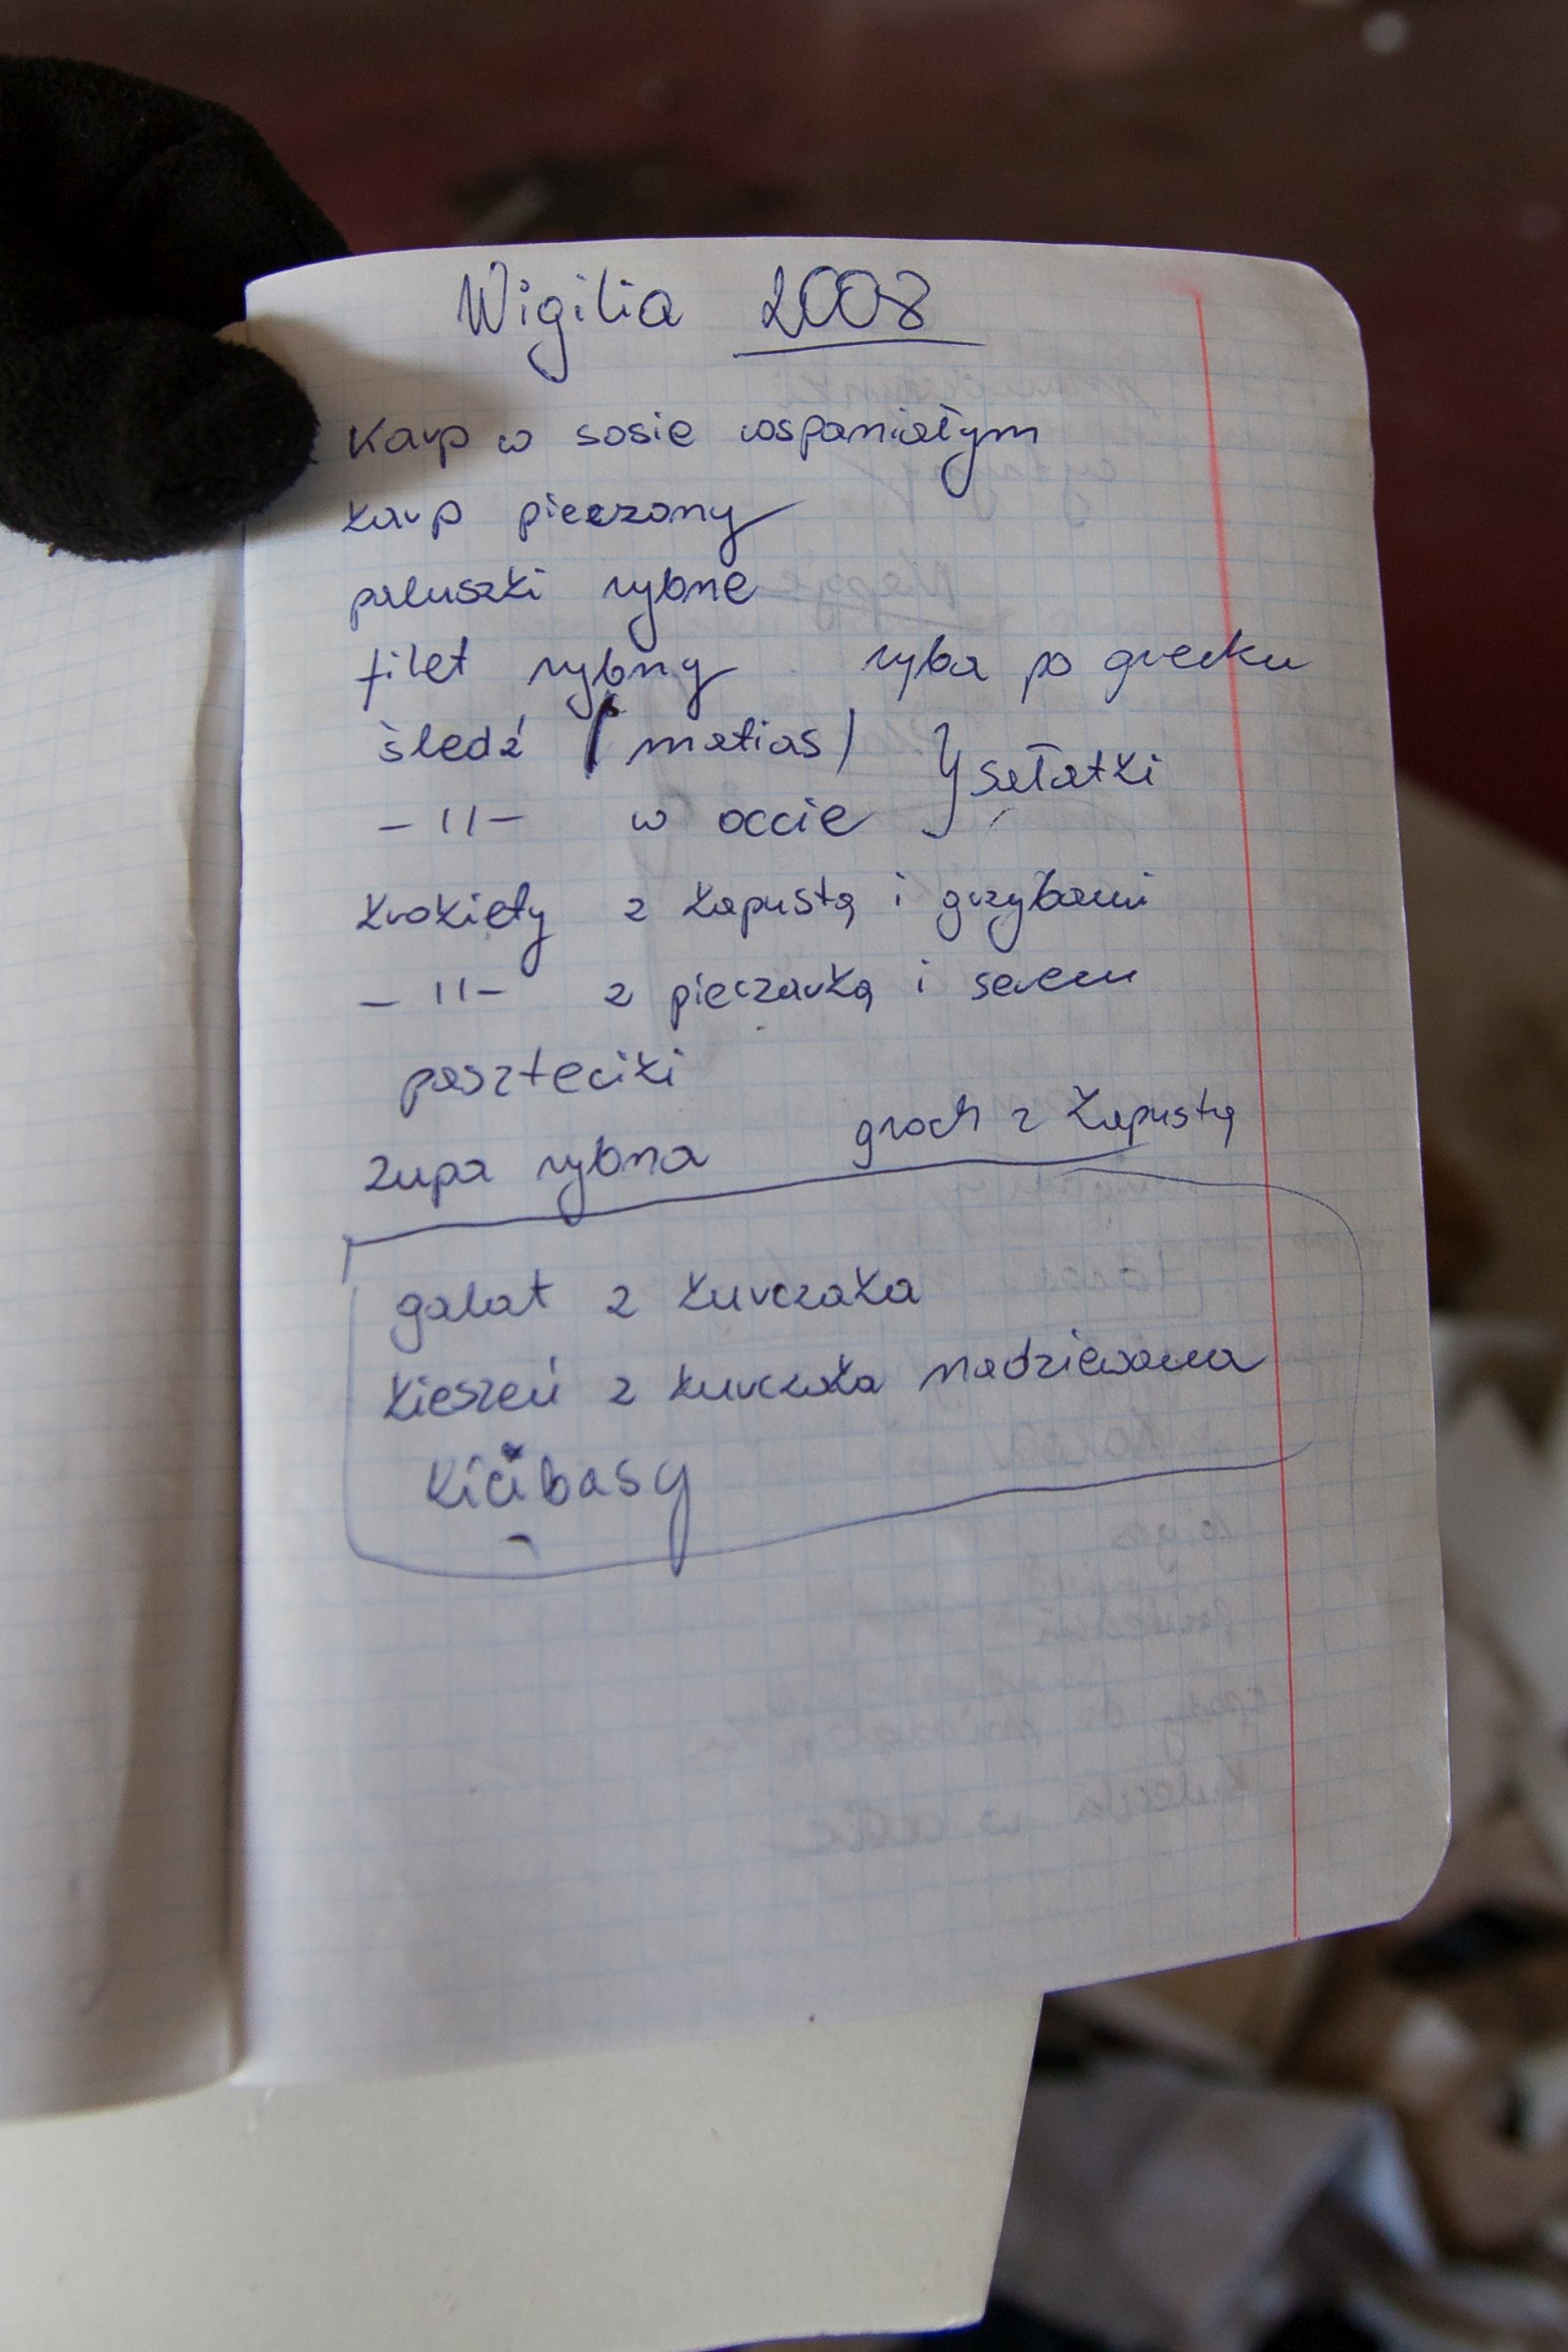 Wigilia 2008
Karp w sosie wspaniałym
karp pieczony
paluszki rybne
filet rybny ryba po grecku
śledź / matias /
} sałatki
-11- w occie
krokiety z kapustą i grzybami
-11- z pieczarką i serem
paszteciki
groch z kapustą
zupa rybna
galat z kurczaka
kieszeń z kurczaka nadziewana